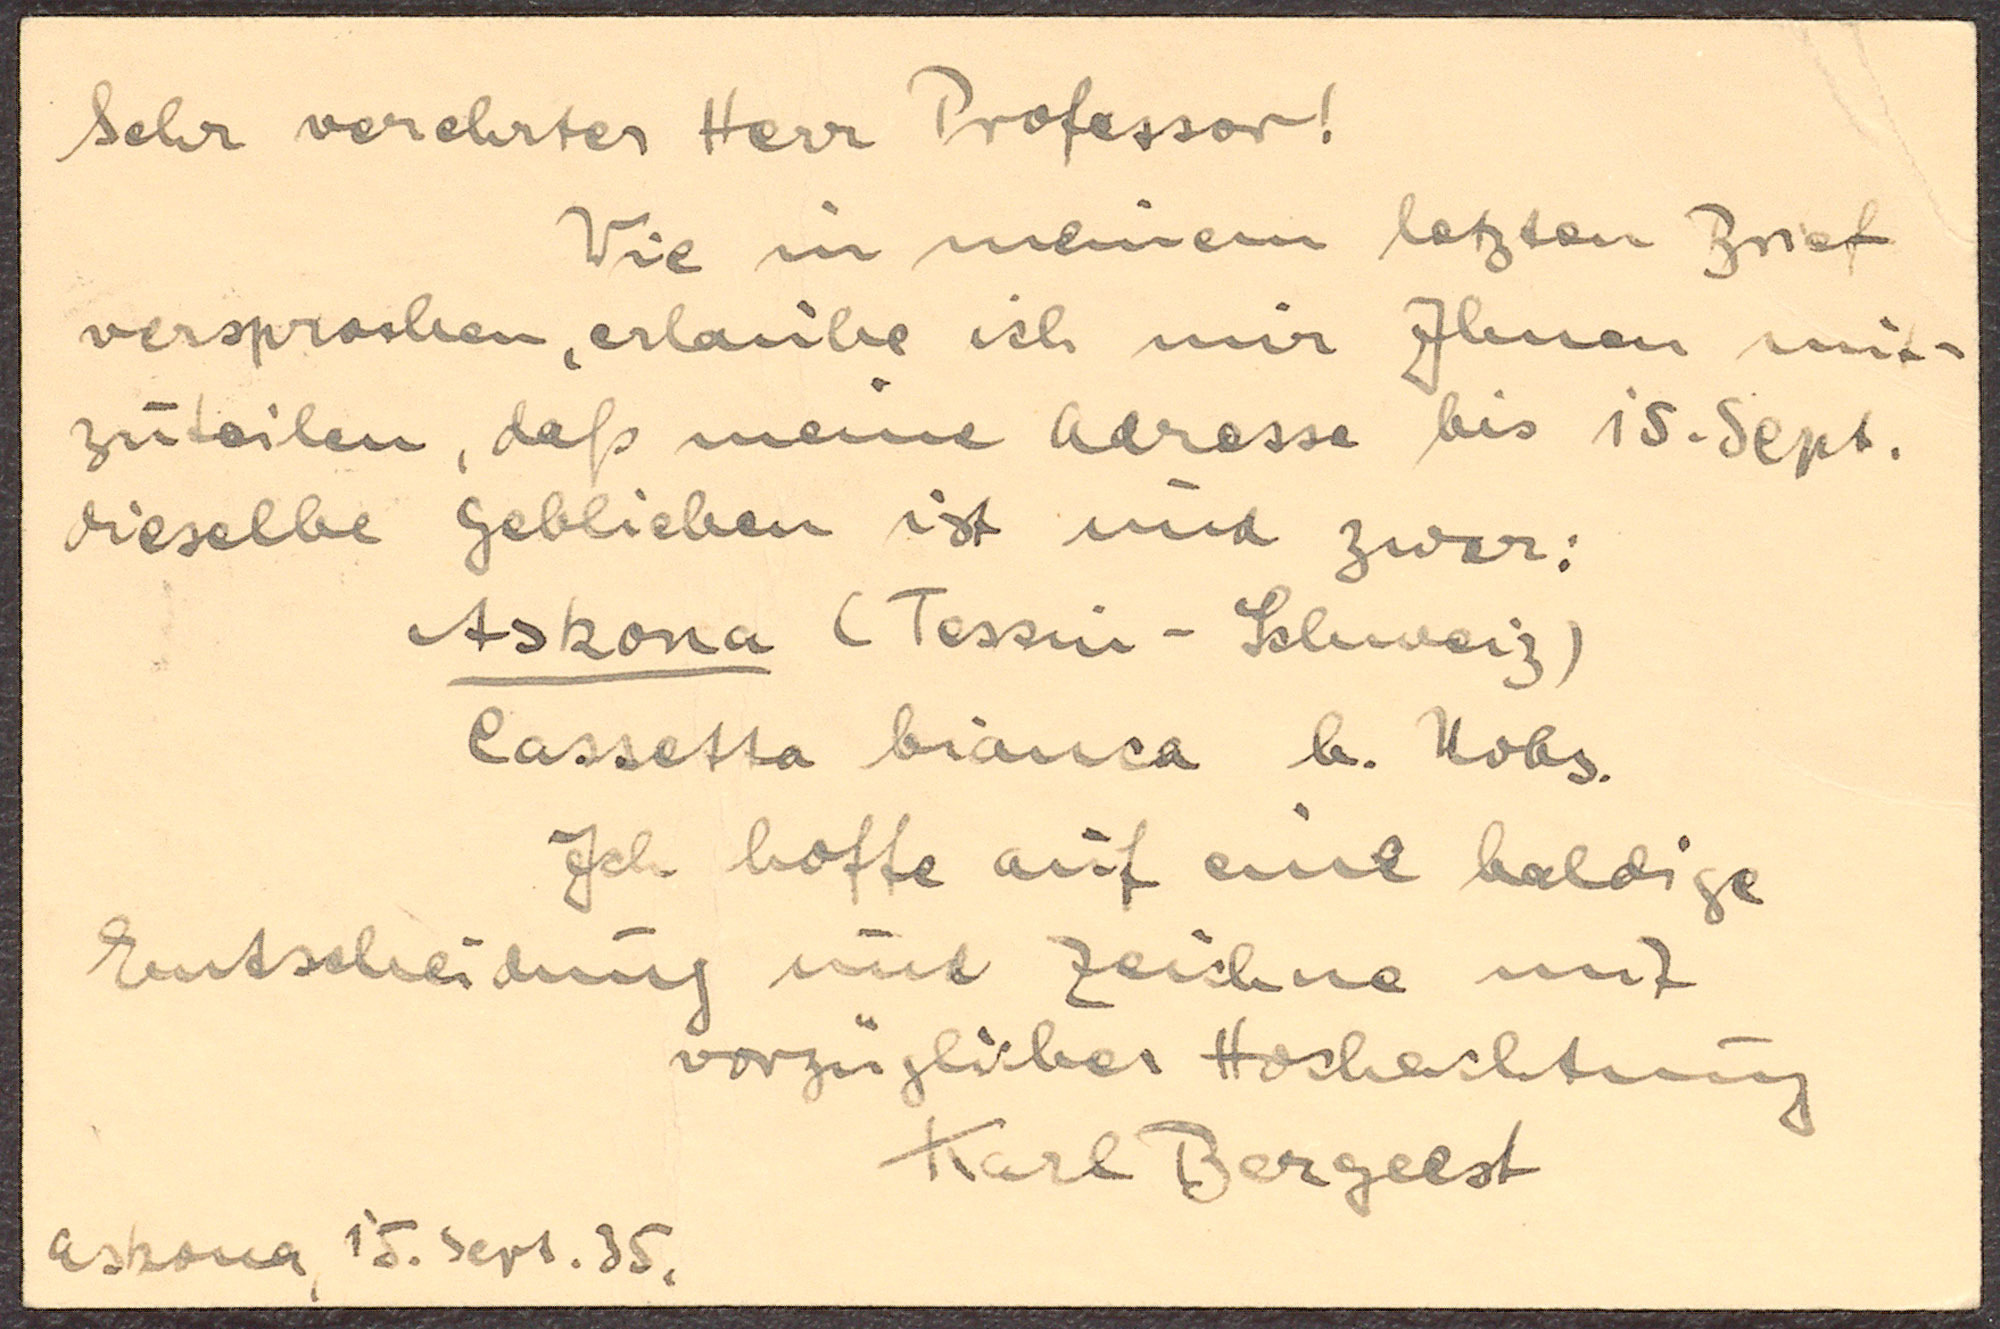 Sehr verehrter Herr Professor!
Wie in meinem letzten Brief
versprochen, erlaube ich mir Ihnen mit-
zuteilen, daß meine Adresse bis 15. Sept.
dieselbe geblieben ist und zwar:
Askona (Tessin - Schweiz)
Casetta bianca b. Nobs.
Ich hoffe auf eine baldige
Entscheidung und zeichne mit
vorzüglicher Hochachtung
Karl Bergeest
Askona, 15. Sept. 35.